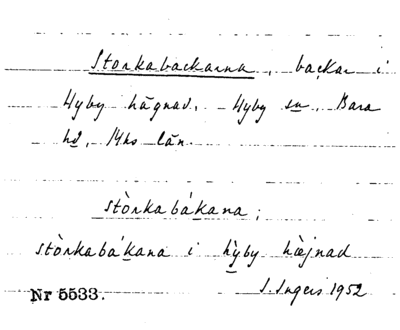 Storkabackarna, backar i
Hyby hägnad, Hyby sn, Bara
hd, Mhs län.
stòrkabákana;
stòrkabákana i hỳby hæ̀jnad
Nr 5533. I. Ingers 1952